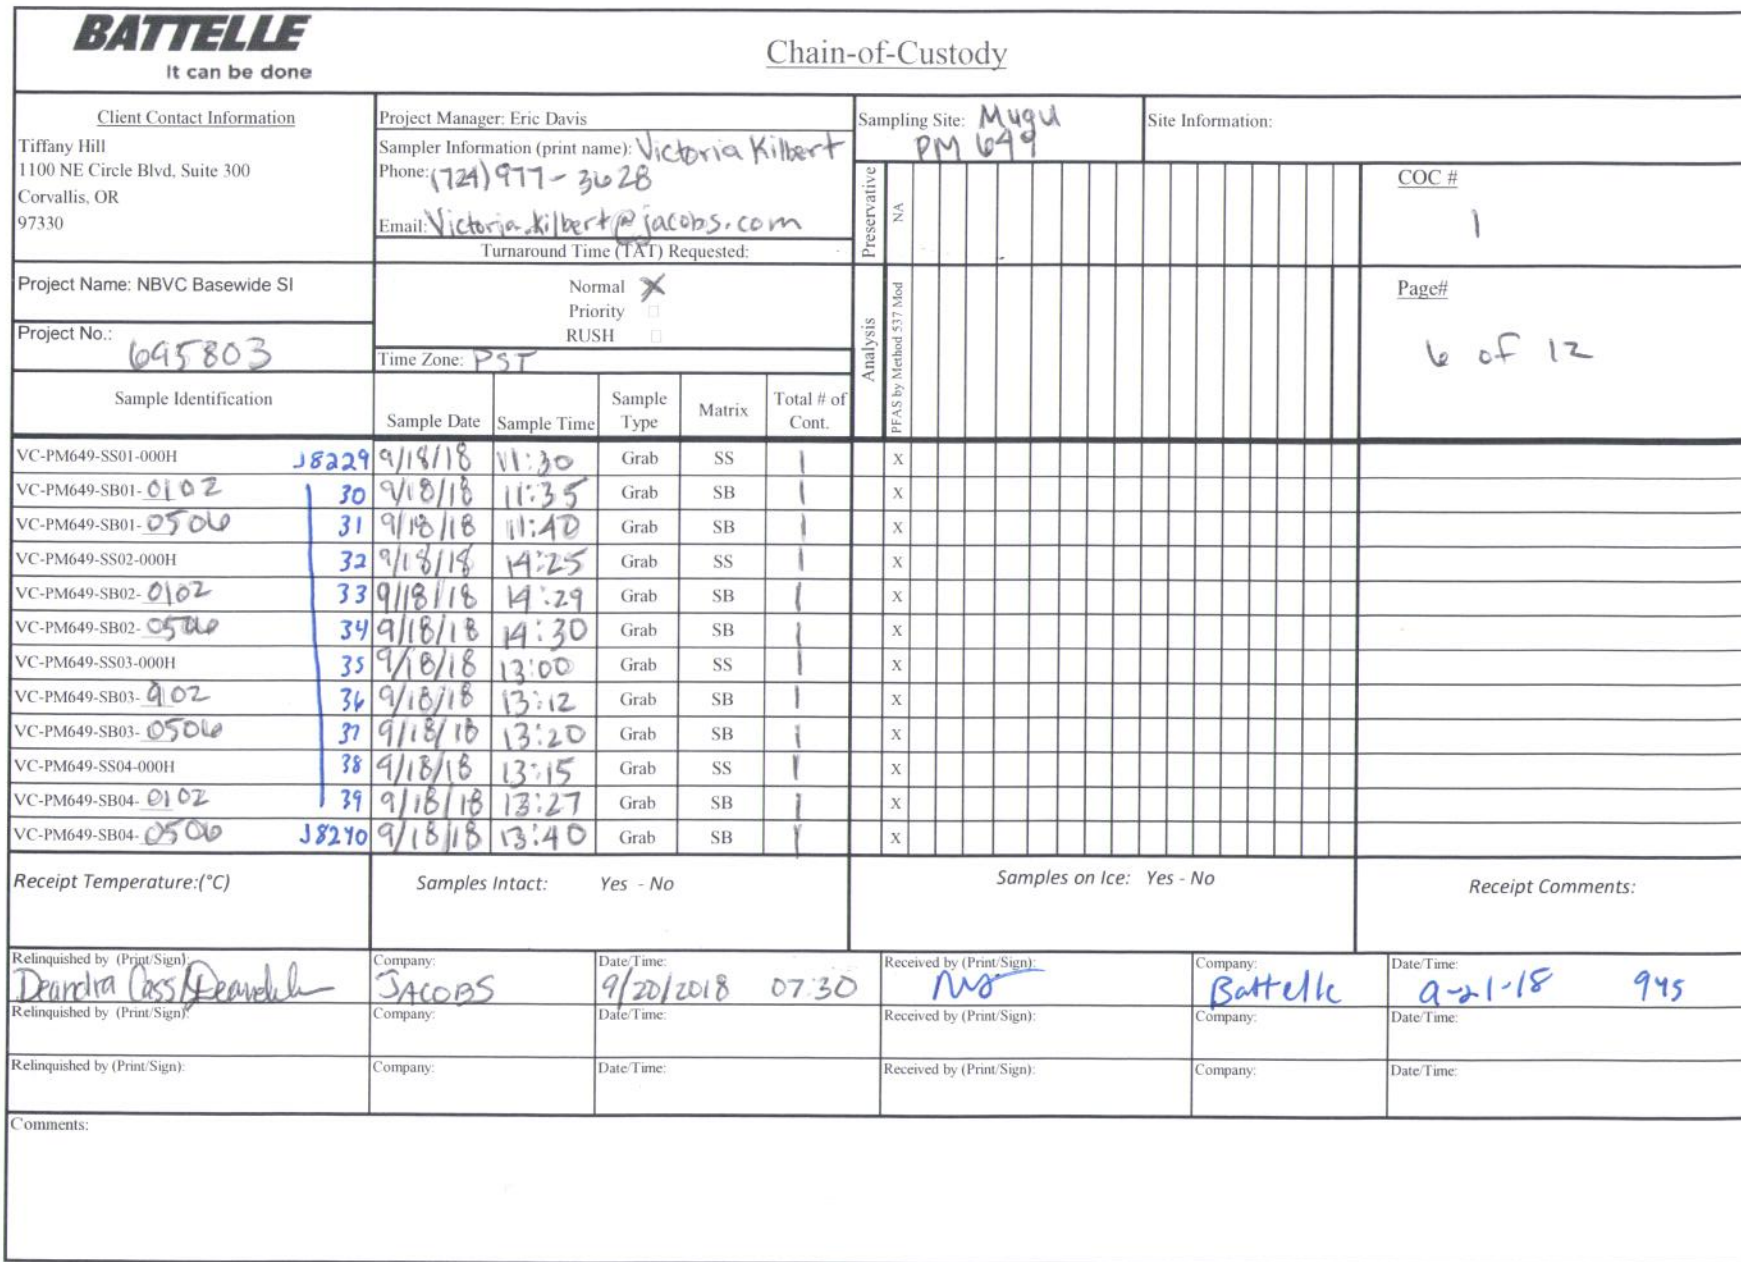 BATTELLE
It can be done
Chain-of-Custody
Client Contact Information
Tiffany Hill
1100 NE Circle Blvd, Suite 300
Corvallis, OR
97330
Project Manager: Eric Davis
Sampler Information (print name): Victoria Kilbert
Phone: (724) 977-3628
Email: Victoria.kilbert@jacobs.com
Turnaround Time (TAT) Requested:
Sampling Site: Mugu
PM 649
Site Information:
Preservative
NA
COC #
1
Project Name: NBVC Basewide SI
Project No.:
695803
Normal X
Priority
RUSH
Time Zone: PST
Analysis
PFAS by Method 537 Mod
Page#
6 of 12
Sample Identification Sample Date Sample Time Sample Type Matrix Total # of Cont.
VC-PM649-SS01-000H J8229 9/18/18 11:30 Grab SS 1 X
VC-PM649-SB01-0102 30 9/18/18 11:35 Grab SB 1 X
VC-PM649-SB01-0506 31 9/18/18 11:40 Grab SB 1 X
VC-PM649-SS02-000H 32 9/18/18 14:25 Grab SS 1 X
VC-PM649-SB02-0102 33 9/18/18 14:29 Grab SB 1 X
VC-PM649-SB02-0506 34 9/18/18 14:30 Grab SB 1 X
VC-PM649-SS03-000H 35 9/18/18 13:00 Grab SS 1 X
VC-PM649-SB03-0102 36 9/18/18 13:12 Grab SB 1 X
VC-PM649-SB03-0506 37 9/18/18 13:20 Grab SB 1 X
VC-PM649-SS04-000H 38 9/18/18 13:15 Grab SS 1 X
VC-PM649-SB04-0102 39 9/18/18 13:27 Grab SB 1 X
VC-PM649-SB04-0506 J8240 9/18/18 13:40 Grab SB 1 X
Receipt Temperature:(°C) Samples Intact: Yes - No Samples on Ice: Yes - No Receipt Comments:
Relinquished by (Print/Sign): Company: Date/Time: Received by (Print/Sign): Company: Date/Time:
Deandra Cass/ JACOBS 9/20/2018 07:30 Battelle 9-21-18 945
Relinquished by (Print/Sign): Company: Date/Time: Received by (Print/Sign): Company: Date/Time:
Relinquished by (Print/Sign): Company: Date/Time: Received by (Print/Sign): Company: Date/Time:
Comments: